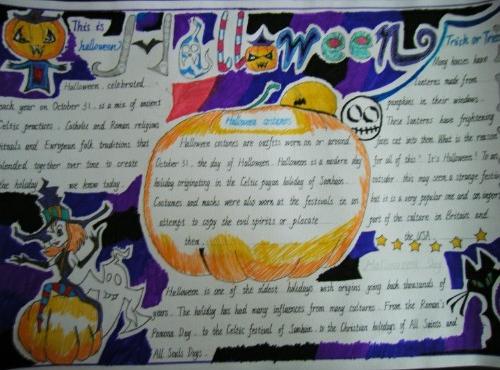 This is
halloween
Halloween
Trick or Treat
Halloween, celebrated
each year on October 31, is a mix of ancient
Celtic practices, Catholic and Roman religious
rituals and European folk traditions that
blended together over time to create
the holiday we know today.
Halloween costumes
Halloween costumes are outfits worn on or around
October 31, the day of Halloween. Halloween is a modern day
holiday originating in the Celtic pagan holiday of Samhain.
Costumes and masks were also worn at the festivals in an
attempt to copy the evil spirits or placate
them.
Many houses have
lanterns made from
pumpkins in their windows.
These lanterns have frightening
faces cut into them. What is the reason
for all of this? It's Halloween! To an
outsider, this may seem a strange festival
but it is a very popular one and an import
part of the culture in Britain and
the USA.
Halloween Day
Halloween is one of the oldest holidays with origins going back thousands of
years. The holiday has had many influences from many cultures. From the Roman's
Pomona Day, to the Celtic festival of Samhain, to the Christian holidays of All Saints and
All Souls Days.